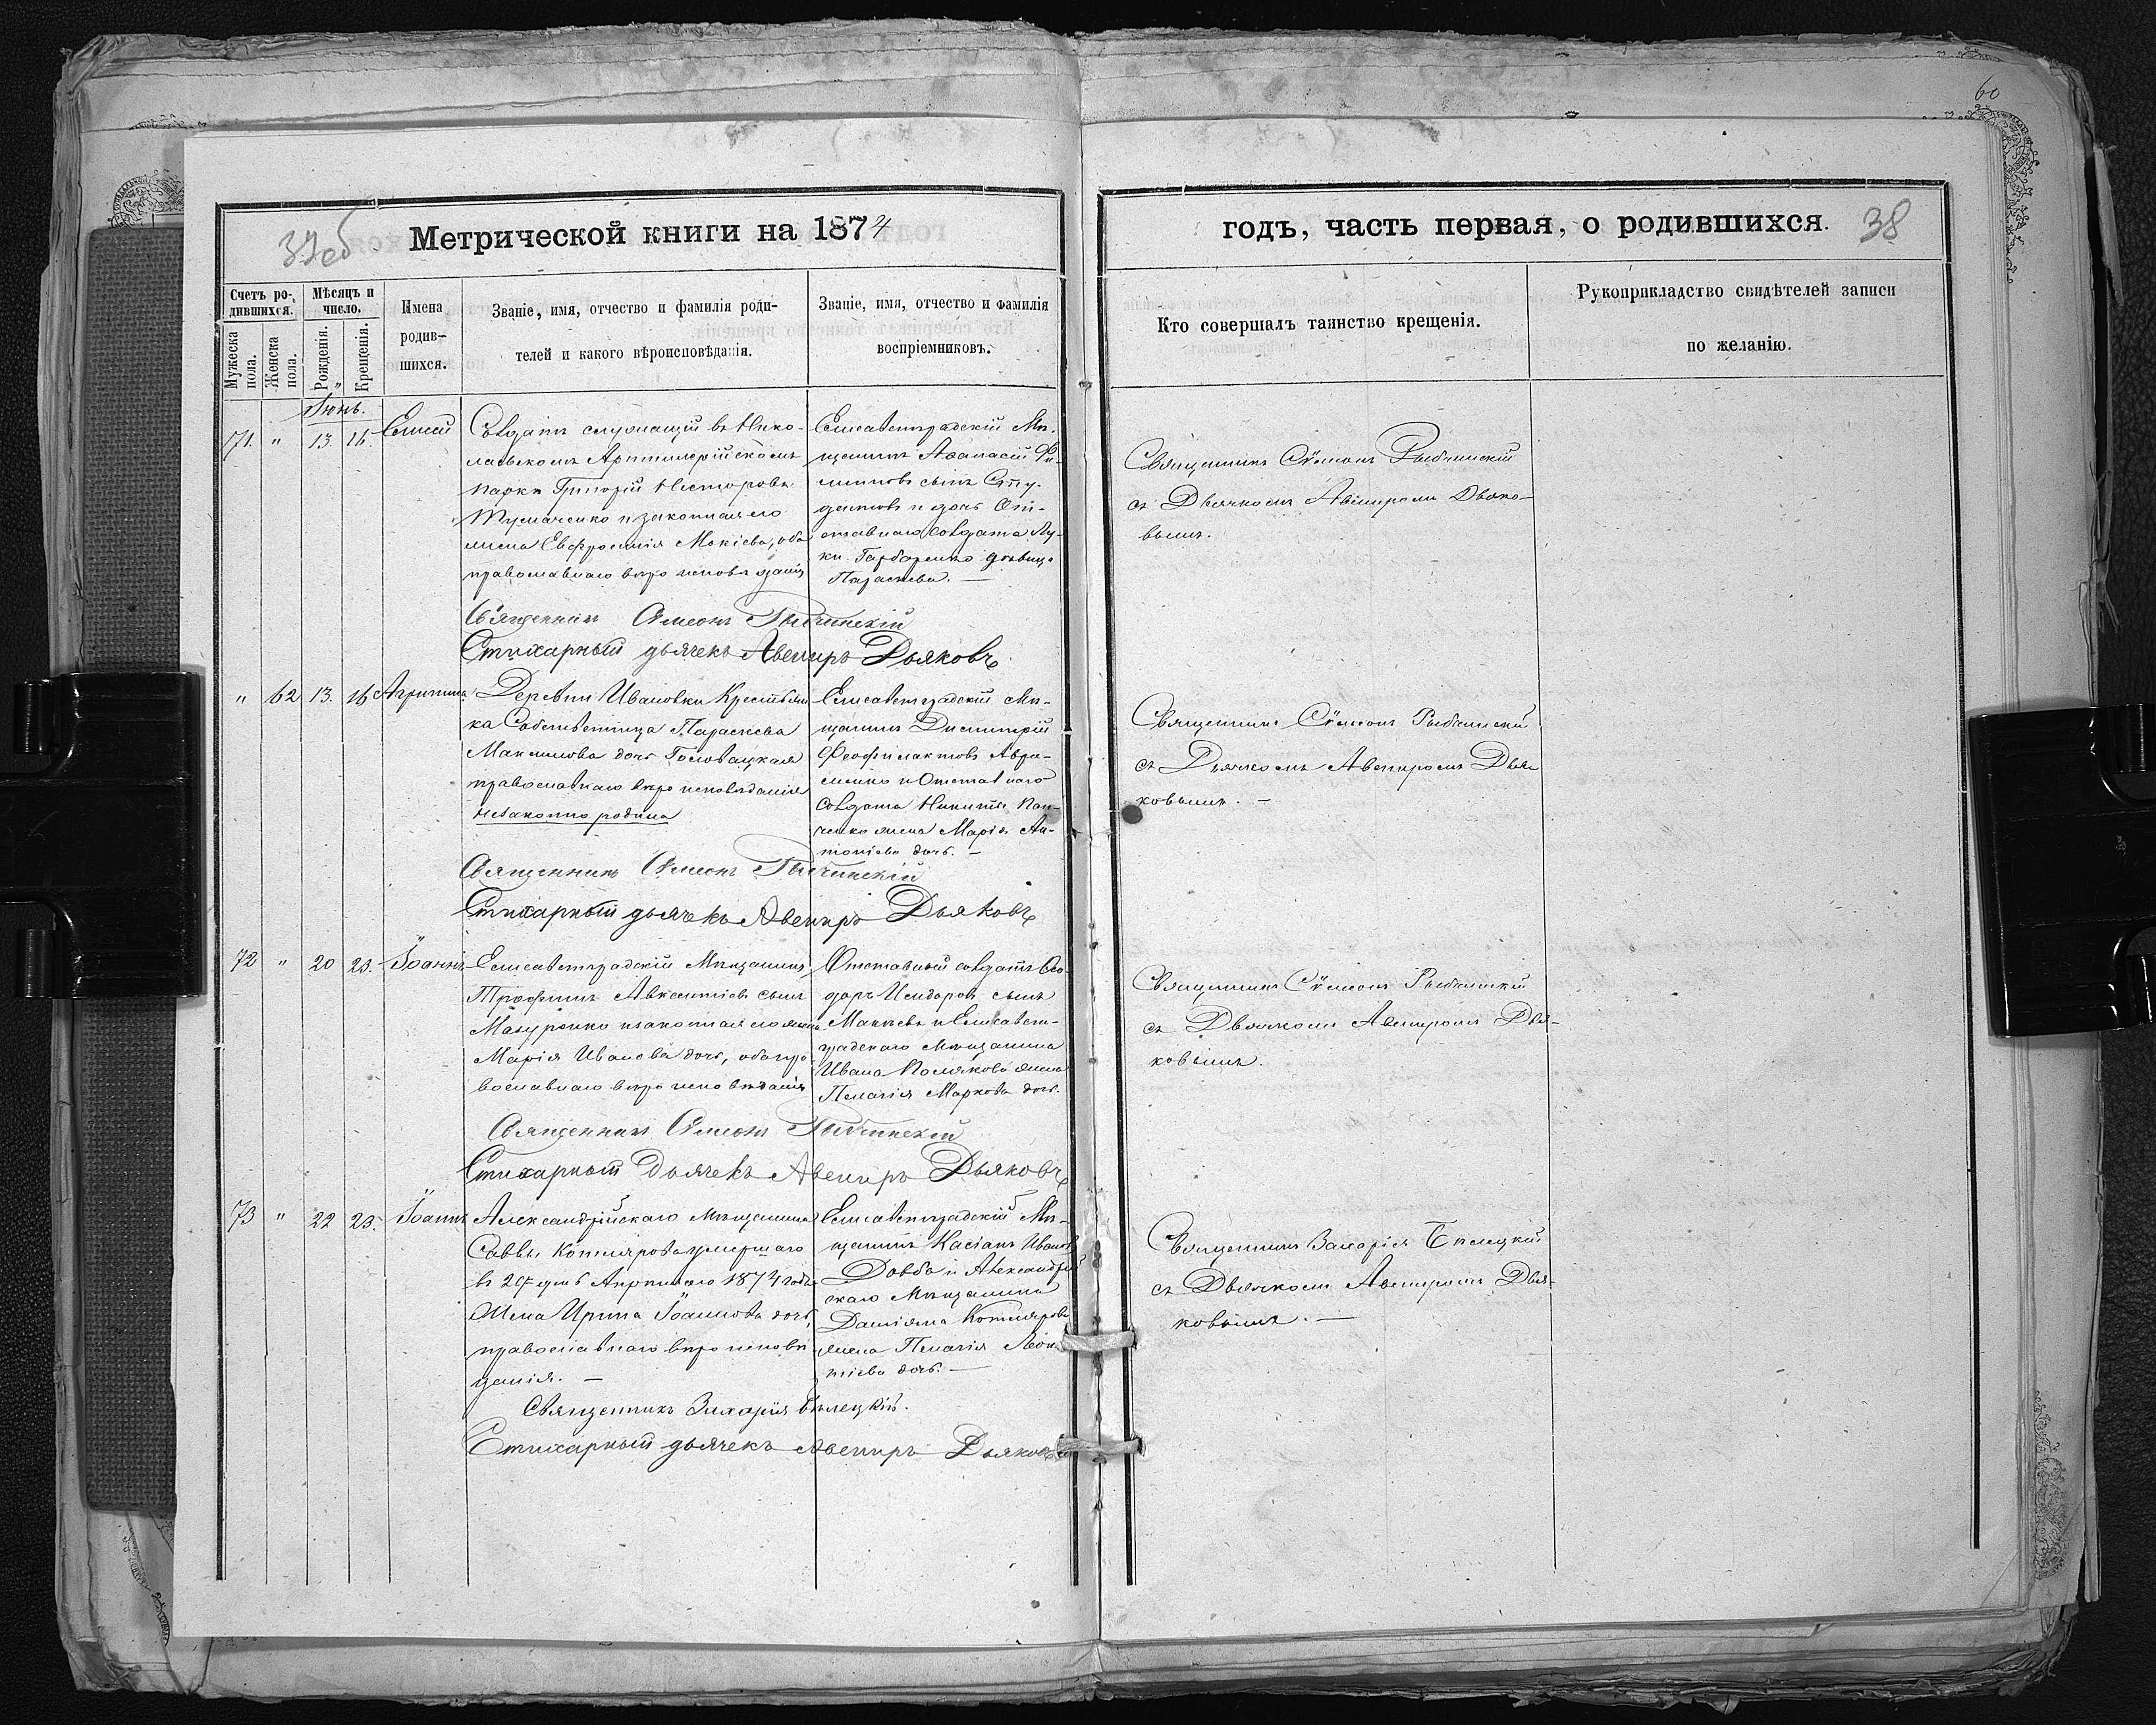 60
37об
Метрической книги на 1874
годъ, часть первая, о родившихся.
38
Счетъ ро-
дившихся.
Мѣсяцъ и
число.
Мужеска
пола.
Женска
пола.
Рожденія.
Крещенія.
Имена
родив-
шихся.
Званіе, имя, отчество и фамилія роди-
телей и какого вѣроисповѣданія.
Званіе, имя, отчество и фамилія
воспріемниковъ.
Кто совершалъ таинство крещенія.
Рукоприкладство свидѣтелей записи
по желанію.
Іюнь.
71. " 13. 16. Елисей
Солдатъ служащій въ Нико-
лаевскомъ Артиллерійскомъ
паркѣ Григорій Несторовъ
и законная его
жена Евфросинія Мокіева, оба
православнаго вѣроисповѣданія
Елисаветградскій Мѣ-
щанинъ Афанасій Фи-
липповъ сынъ
и дочь От-
ставнаго солдата Лу-
ки Гарбаренко дѣвица
Параскева. —
Священникъ Сѵмеонъ
съ Дьячкомъ Авениромъ Дьяко-
вымъ.
Священникъ Сѵмеонъ
Стихарный дьячекъ Авениръ Дьяковъ
" 62 13. 16 Агрипина
Деревни Ивановки Крестьян-
ка Собственница Параскева
Максимова дочь Головацкая
православнаго вѣроисповѣданія
незаконно родила
Елисаветградскій Мѣ-
щанинъ Димитрій
Феофилактовъ Авра-
менко и Отставнаго
солдата Никиты Пан-
ченко жена Марія Ан-
тоніева дочь. —
Священникъ Сѵмеонъ
съ Дьячкомъ Авениромъ Дья-
ковымъ. —
Священникъ Сѵмеонъ
Стихарный дьячекъ Авениръ Дьяковъ
72 " 20 23. Іоаннъ
Елисаветградскій Мѣщанинъ
Трофимъ Авксентіевъ сынъ
Мазуренко и законная его жена
Марія Иванова дочь, оба пра-
вославнаго вѣроисповѣданія
Отставный солдатъ Фео-
доръ Исидоровъ сынъ
и Елисавет-
градскаго Мѣщанина
Ивана Полякова жена
Пелагія Маркова дочь.
Священникъ Сѵмеонъ
съ Дьячкомъ Авениромъ Дья-
ковымъ.
Священникъ Сѵмеонъ
Стихарный Дьячекъ Авениръ Дьяковъ
73 " 22 23. Іоаннъ
Александрійскаго Мѣщанина
Саввы Котлярова умершаго
въ день Апрѣля 1874 года
жена Ирина Іоаннова дочь,
православнаго вѣроисповѣ-
данія. —
Елисаветградскій Мѣ-
щанинъ Касіанъ Ивановъ
Довбъ и Александрій-
скаго Мѣщанина
Даміана Котлярова
жена Пелагія Леон-
тіева дочь. —
Священникъ Захарія Бѣлецкій
съ Дьячкомъ Авениромъ Дья-
ковымъ. —
Священникъ Захарія Бѣлецкій.
Стихарный дьячекъ Авениръ Дьяковъ